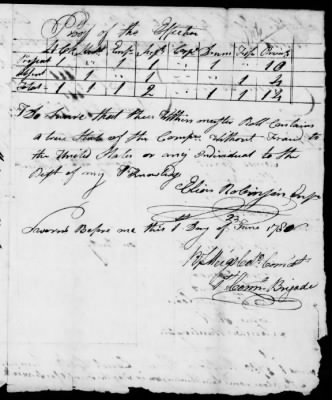 Proof of the Effectives
Lt Col Ensn Sergts Corpl Drum Fifs Privts
Present 1 1 1 1 " 1 " 10
Absent " " " 1 " " 1 4
Total 1 1 1 2 " 1 1 14
I Do Swear that the within muster Roll Contains
a true State of the Compy Without Fraud to
the United States or any Individual to the
Best of my Knowledg
Elias Robinson Ensn
Sworn Before me this 1st Day of June 1780
R J Meigs Colo Comdt
1st Conn. Brigade